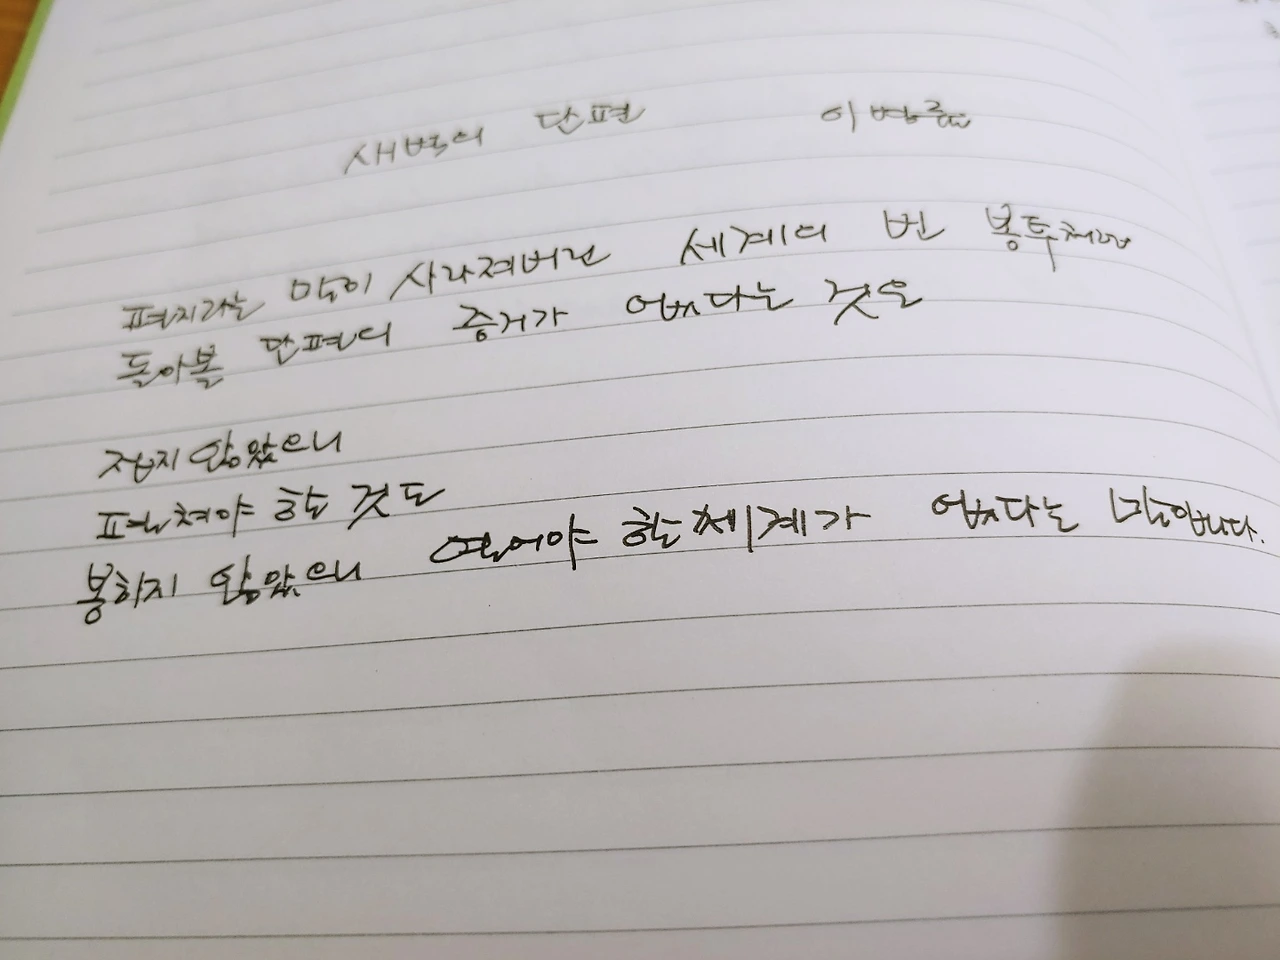 새벽의 단편 이병률
편지라는 말이 사라져버린 세계의 빈 봉투처럼
돌아볼 단편의 증거가 없다는 것은
접지 않았으니
펼쳐야 할 것도
봉하지 않았으니 열어야 할 체계가 없다는 말입니다.